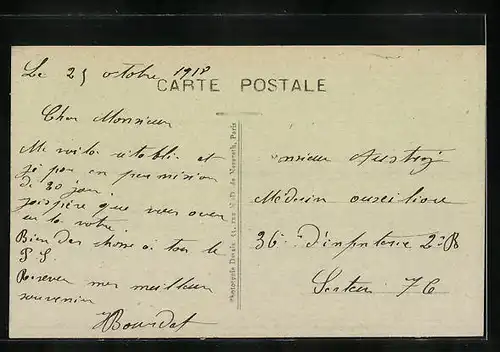 Le 25 octobre 1918
CARTE POSTALE
Cher Monsieur
Me voila rétabli et
j'ai pas eu permission
de 20 jours
J'espère que vous avez
eu la votre
Bien des choses à tous le
P S
Recevez mes meilleurs
souvenirs
HBourdat
Phototypie Daniel Delboy, Paris
Monsieur
Medecin auxiliaire
36e d'infanterie 2e B
Secteur 76